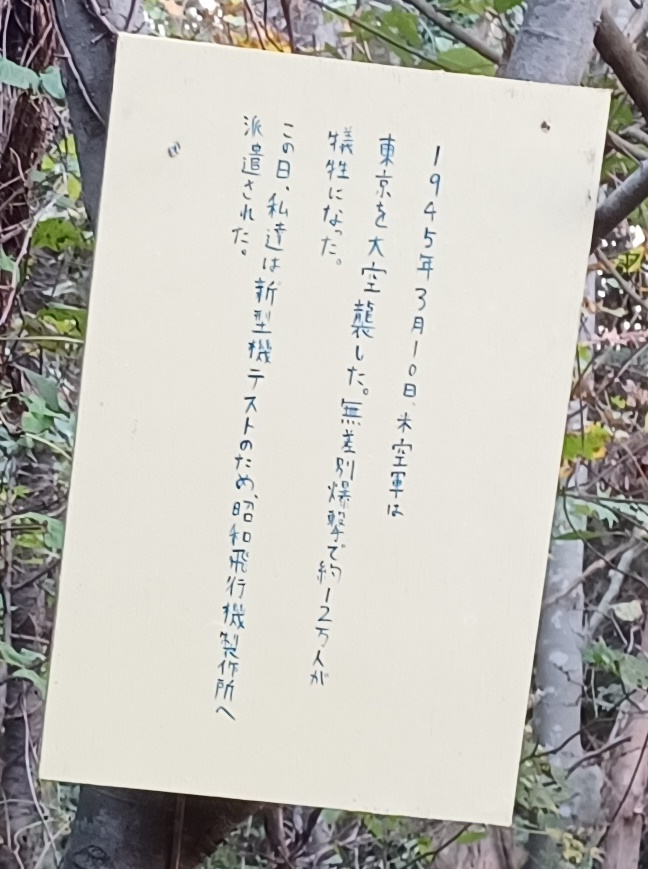 1945年3月10日、米空軍は
東京を大空襲した。無差別爆撃で約12万人が
犠牲になった。
この日、私達は新型機テストのため、昭和飛行機製作所へ
派遣された。